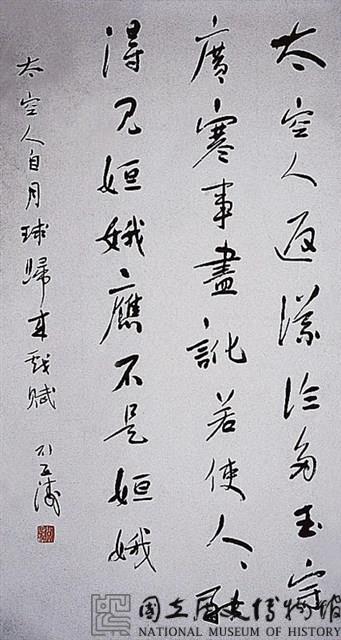 太空人返多玉宇
廣寒事盡訛若使人人
得見姮娥應不是姮娥
太空人自月球歸來戲賦
國立歷史博物館
NATIONAL MUSEUM OF HISTORY